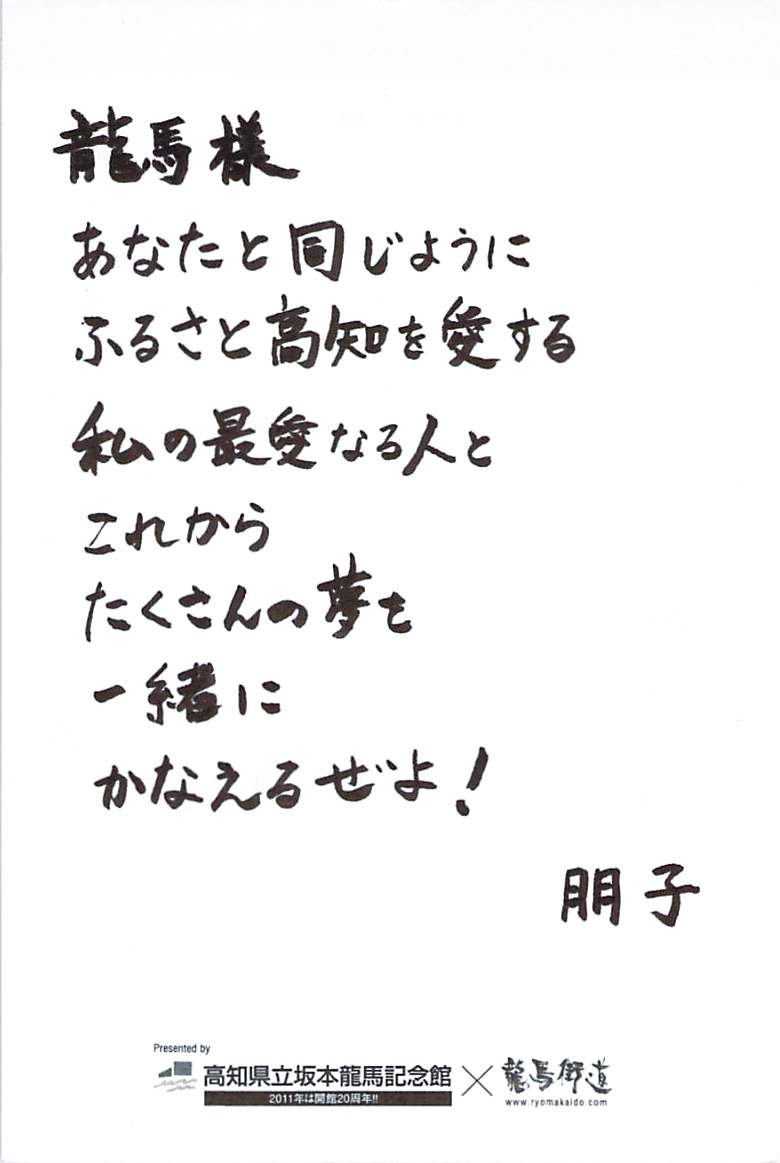 龍馬様
あなたと同じように
ふるさと高知を愛する
私の最愛なる人と
これから
たくさんの夢を
一緒に
かなえるぜよ!
朋子
Presented by
高知県立坂本龍馬記念館 × 龍馬街道
2011年は開館20周年!!
www.ryomakaido.com